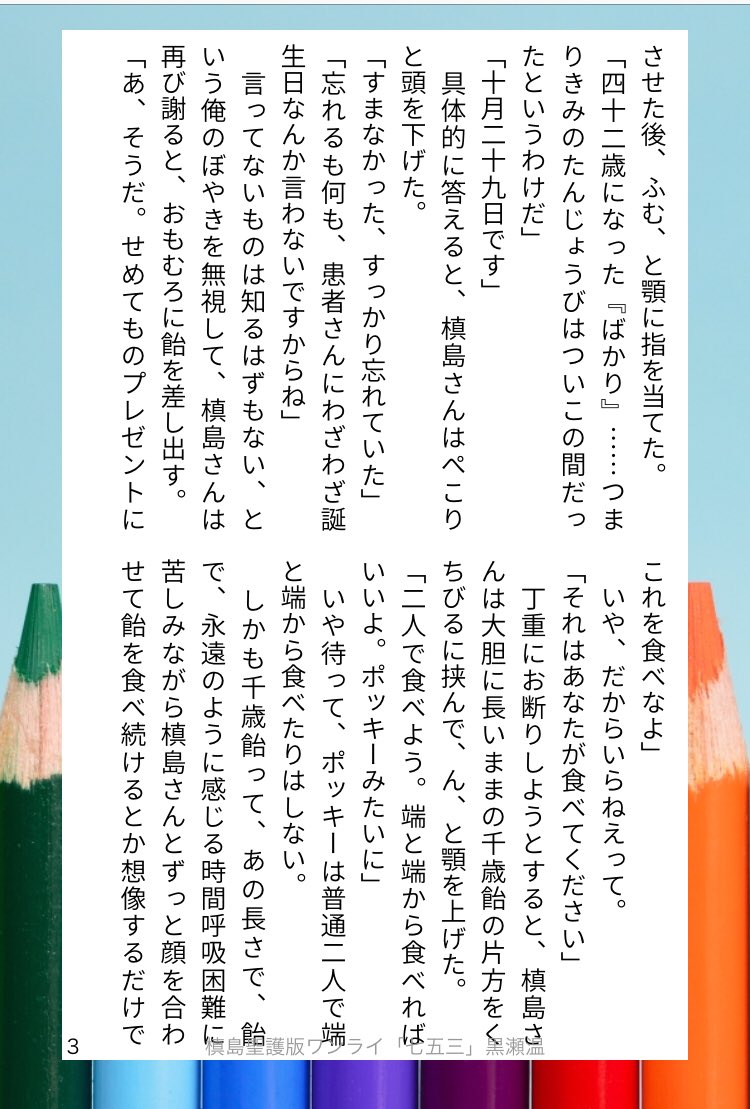 させた後、ふむ、と顎に指を当てた。
「四十二歳になった『ばかり』……つま
りきみのたんじょうびはついこの間だっ
たというわけだ」
「十月二十九日です」
　具体的に答えると、槙島さんはぺこり
と頭を下げた。
「すまなかった、すっかり忘れていた」
「忘れるも何も、患者さんにわざわざ誕
生日なんか言わないですからね」
　言ってないものは知るはずもない、と
いう俺のぼやきを無視して、槙島さんは
再び謝ると、おもむろに飴を差し出す。
「あ、そうだ。せめてものプレゼントに
これを食べなよ」
　いや、だからいらねえって。
「それはあなたが食べてください」
　丁重にお断りしようとすると、槙島さ
んは大胆に長いままの千歳飴の片方をく
ちびるに挟んで、ん、と顎を上げた。
「二人で食べよう。端と端から食べれば
いいよ。ポッキーみたいに」
　いや待って、ポッキーは普通二人で端
と端から食べたりはしない。
　しかも千歳飴って、あの長さで、飴
で、永遠のように感じる時間呼吸困難に
苦しみながら槙島さんとずっと顔を合わ
せて飴を食べ続けるとか想像するだけで
3
槙島聖護版ワンライ「七五三」黒瀬温